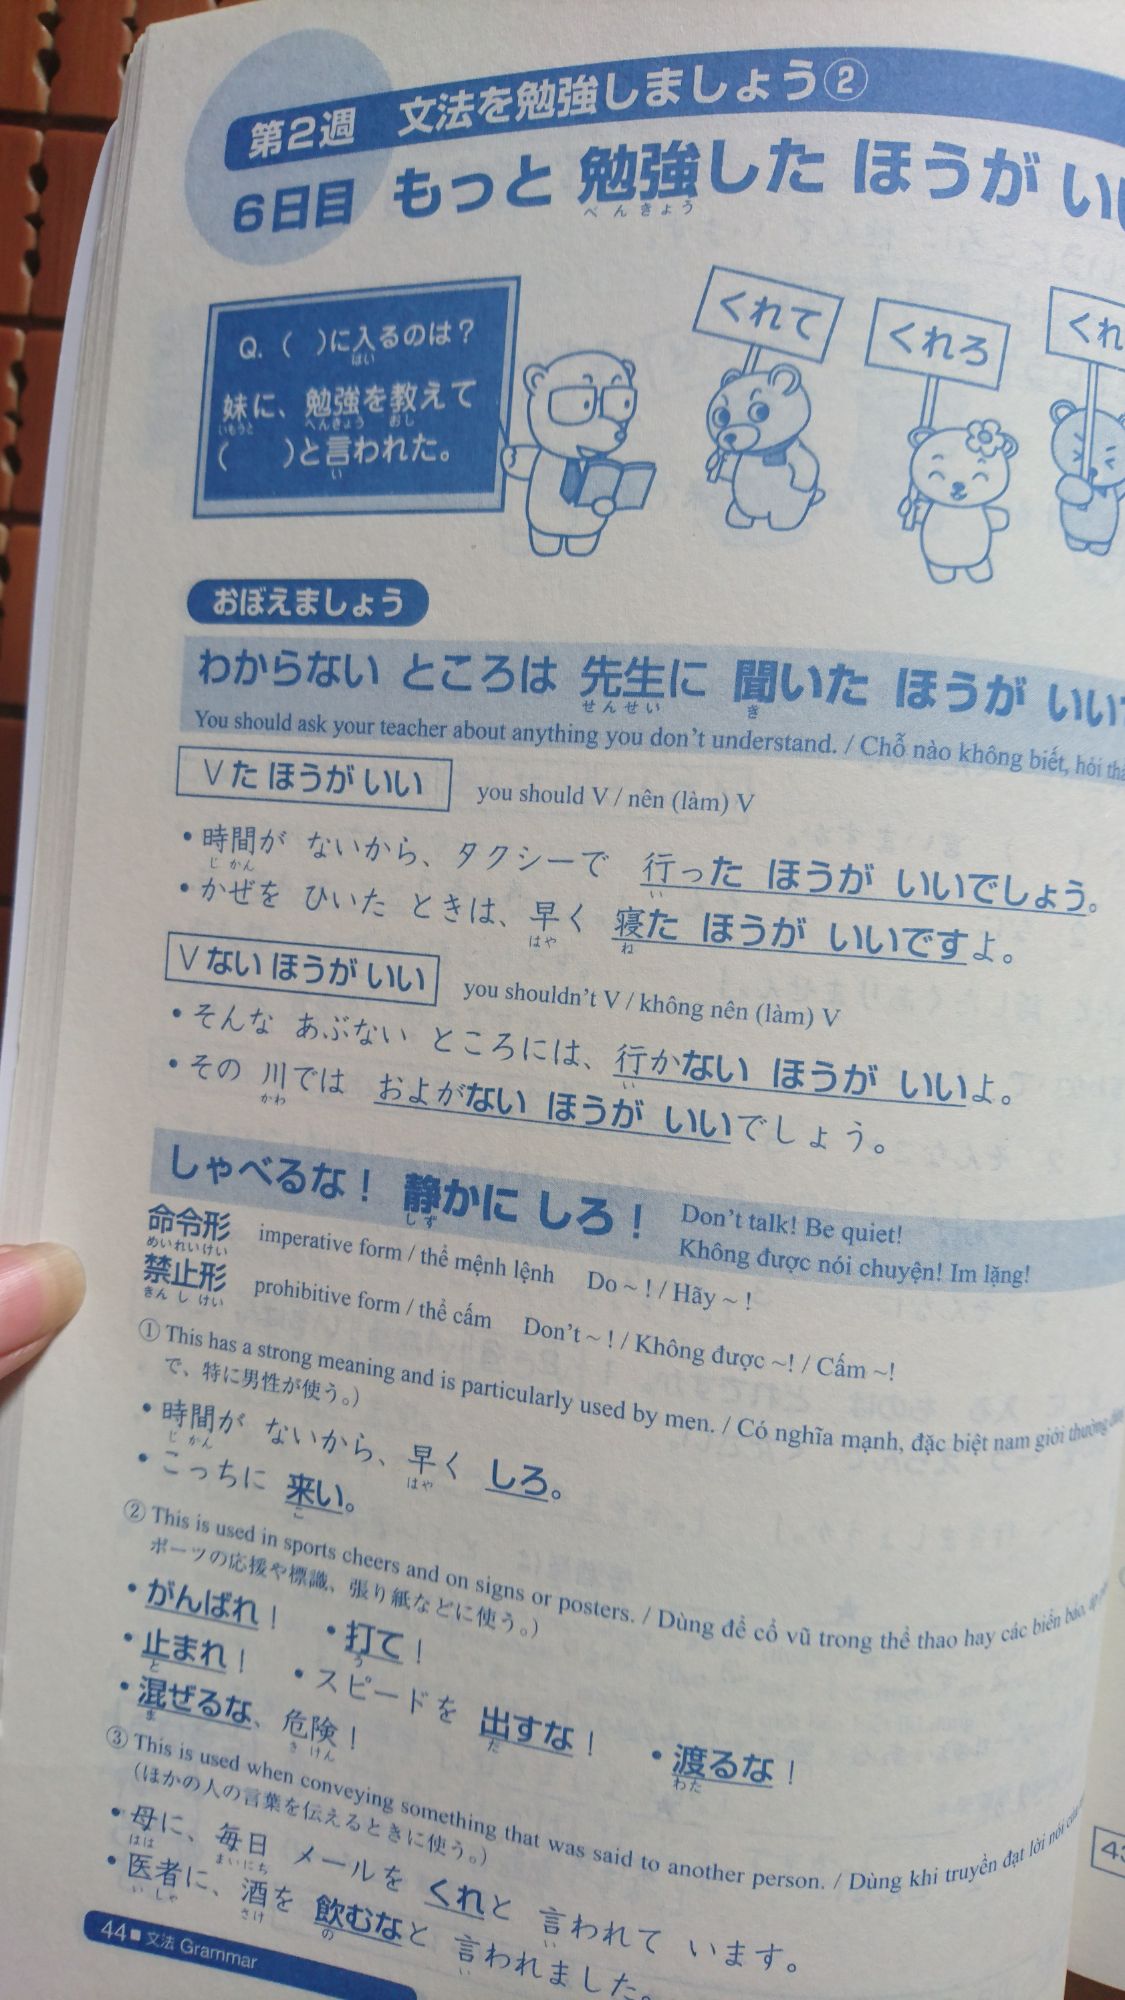 第2週 文法を勉強しましょう②
6日目 もっと 勉強した ほうが い
べんきょう
Q.( )に入るのは?
はい
妹に、勉強を教えて
いもうと べんきょう おし
( )と言われた。
い
くれて
くれろ
くれ
おぼえましょう
わからない ところは 先生に 聞いた ほうが いい
せんせい き
You should ask your teacher about anything you don't understand. / Chỗ nào không biết, hỏi
Vた ほうが いい you should V / nên (làm) V
• 時間が ないから、タクシーで 行った ほうが いいでしょう。
じかん い
• かぜを ひいた ときは、早く 寝た ほうが いいですよ。
はや ね
Vない ほうが いい you shouldn't V / không nên (làm) V
• そんな あぶない ところには、行かない ほうが いいよ。
い
• その 川では およがない ほうが いいでしょう。
かわ
しゃべるな! 静かに しろ! Don't talk! Be quiet!
しず
Không được nói chuyện! Im lặng!
命令形 imperative form / thể mệnh lệnh Do ~ ! / Hãy ~ !
めいれいけい
禁止形 prohibitive form / thể cấm Don't ~ ! / Không được ~! / Cấm ~!
きんしけい
① This has a strong meaning and is particularly used by men. / Có nghĩa mạnh, đặc biệt nam giới thường
で、特に男性が使う。)
• 時間が ないから、早く しろ。
じかん はや
• こっちに 来い。
こ
② This is used in sports cheers and on signs or posters. / Dùng để cổ vũ trong thể thao hay các biển báo,
ポーツの応援や標識、張り紙などに使う。)
• がんばれ! • 打て!
う
• 止まれ! • スピードを 出すな! • 渡るな!
と だ わた
• 混ぜるな、危険!
ま きけん
③ This is used when conveying something that was said to another person. / Dùng khi truyền đạt lời nói của
(ほかの人の言葉を伝えるときに使う。)
• 母に、毎日 メールを くれと 言われて います。
はは まいにち い
• 医者に、酒を 飲むなと 言われました。
いしゃ さけ の い
44■ 文法 Grammar